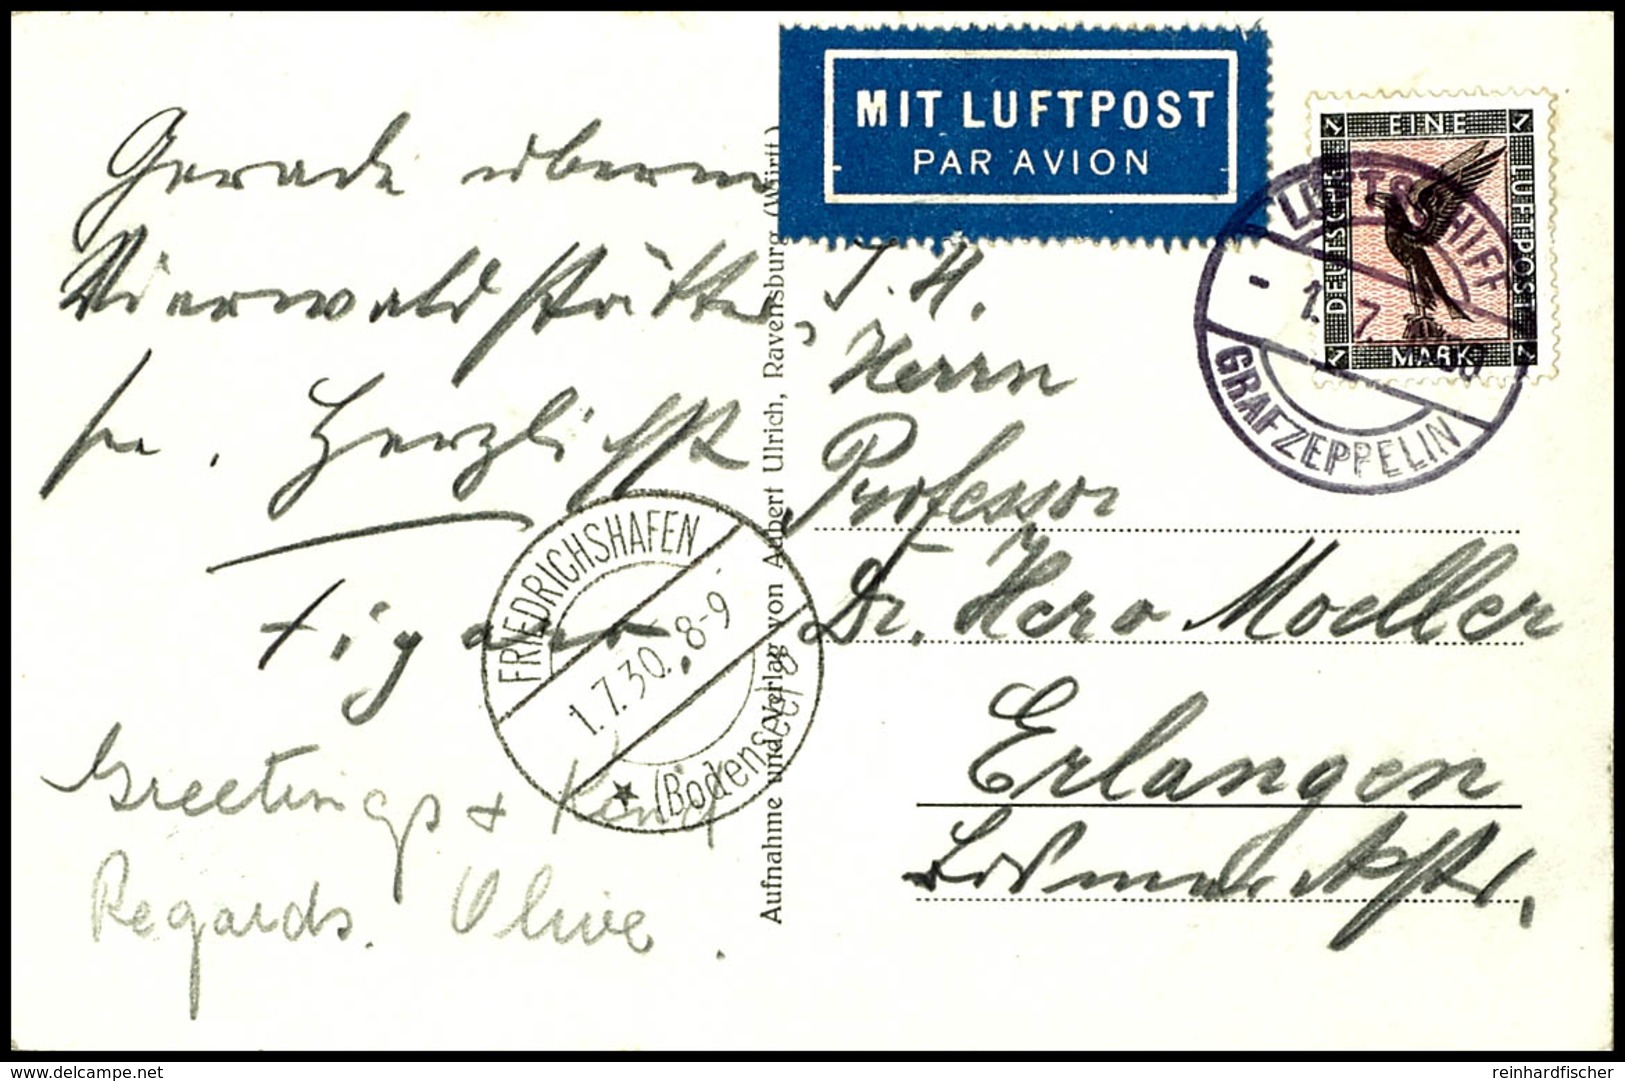 MIT LUFTPOST
PAR AVION
EINE
DEUTSCHE
LUFTPOST
MARK
1 1 1 1
LUFTSCHIFF
- 1. 7. 1930
GRAF ZEPPELIN
Gerade überm
Vierwaldstätter
See. Herzlichst
FRIEDRICHSHAFEN
1.7.30. 8-9
★ (Bodensee)
Greetings & Kind
Regards. Olive.
Aufnahme und Verlag von Albert Ulrich, Ravensburg (Württ.)
S. H.
Herrn
Professor
Dr. Hero Moeller
Erlangen
reinhardfischer